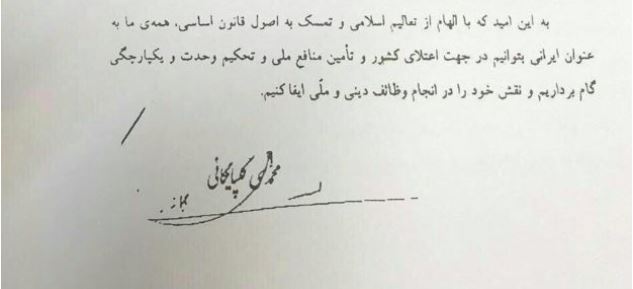 به این امید که با الهام از تعالیم اسلامی و تمسک به اصول قانون اساسی، همه‌ی ما به
عنوان ایرانی بتوانیم در جهت اعتلای کشور و تأمین منافع ملی و تحکیم وحدت و یکپارچگی
گام برداریم و نقش خود را در انجام وظائف دینی و ملّی ایفا کنیم.
محمدی گلپایگانی